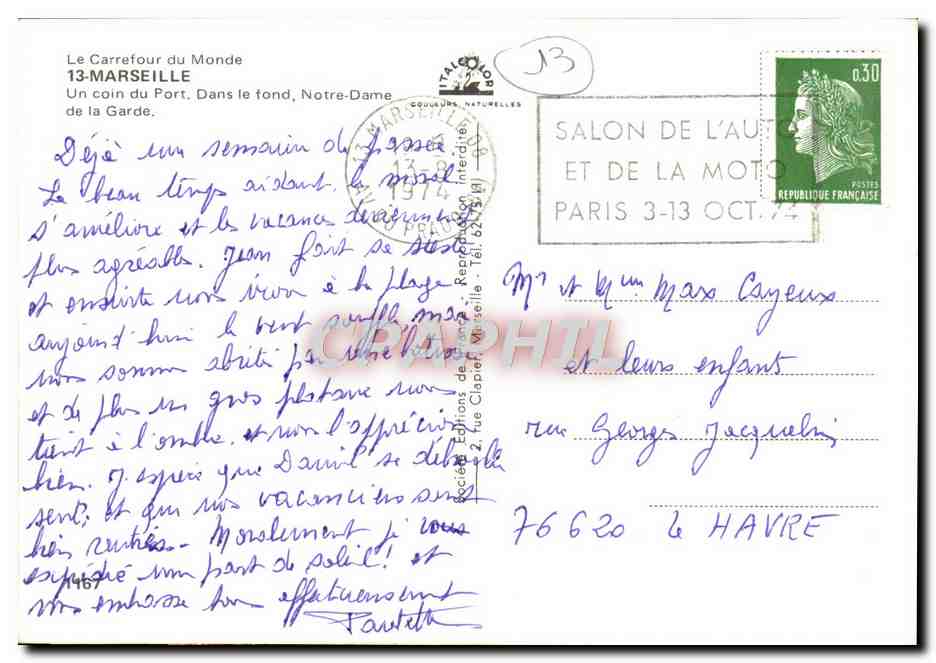 Le Carrefour du Monde
13-MARSEILLE
Un coin du Port. Dans le fond, Notre-Dame
de la Garde.
ITALCOLOR
COULEURS NATURELLES
13
13-MARSEILLE 08
1974
SALON DE L'AUTO
ET DE LA MOTO
PARIS 3-13 OCT. 74
0,30
POSTES
REPUBLIQUE FRANÇAISE
Déjà un semaine de passée
Le beau temps aidant, le moral
s'améliore et les vacances deviennent
plus agréables. Jean fait sa sieste
et ensuite nous irons à la plage
aujourd'hui le vent souffle mais
nous somme abrité par une
et de plus un gros platane nous
tient à l'ombre et nous l'apprécions
bien. J'espère que Daniel se
sent, et que nos vacanciers sont
bien rentrés. Moralement je vous
expédie une part de soleil! et
vous embrasse tous affectueusement
1167
Société Editions de France - Reproduction interdite
2, rue Clapier, Marseille - Tél.
CPAPHIL
Mr et Mme Max Cayeux
et leurs enfant
rue Georges Jacquelin
76620 le HAVRE